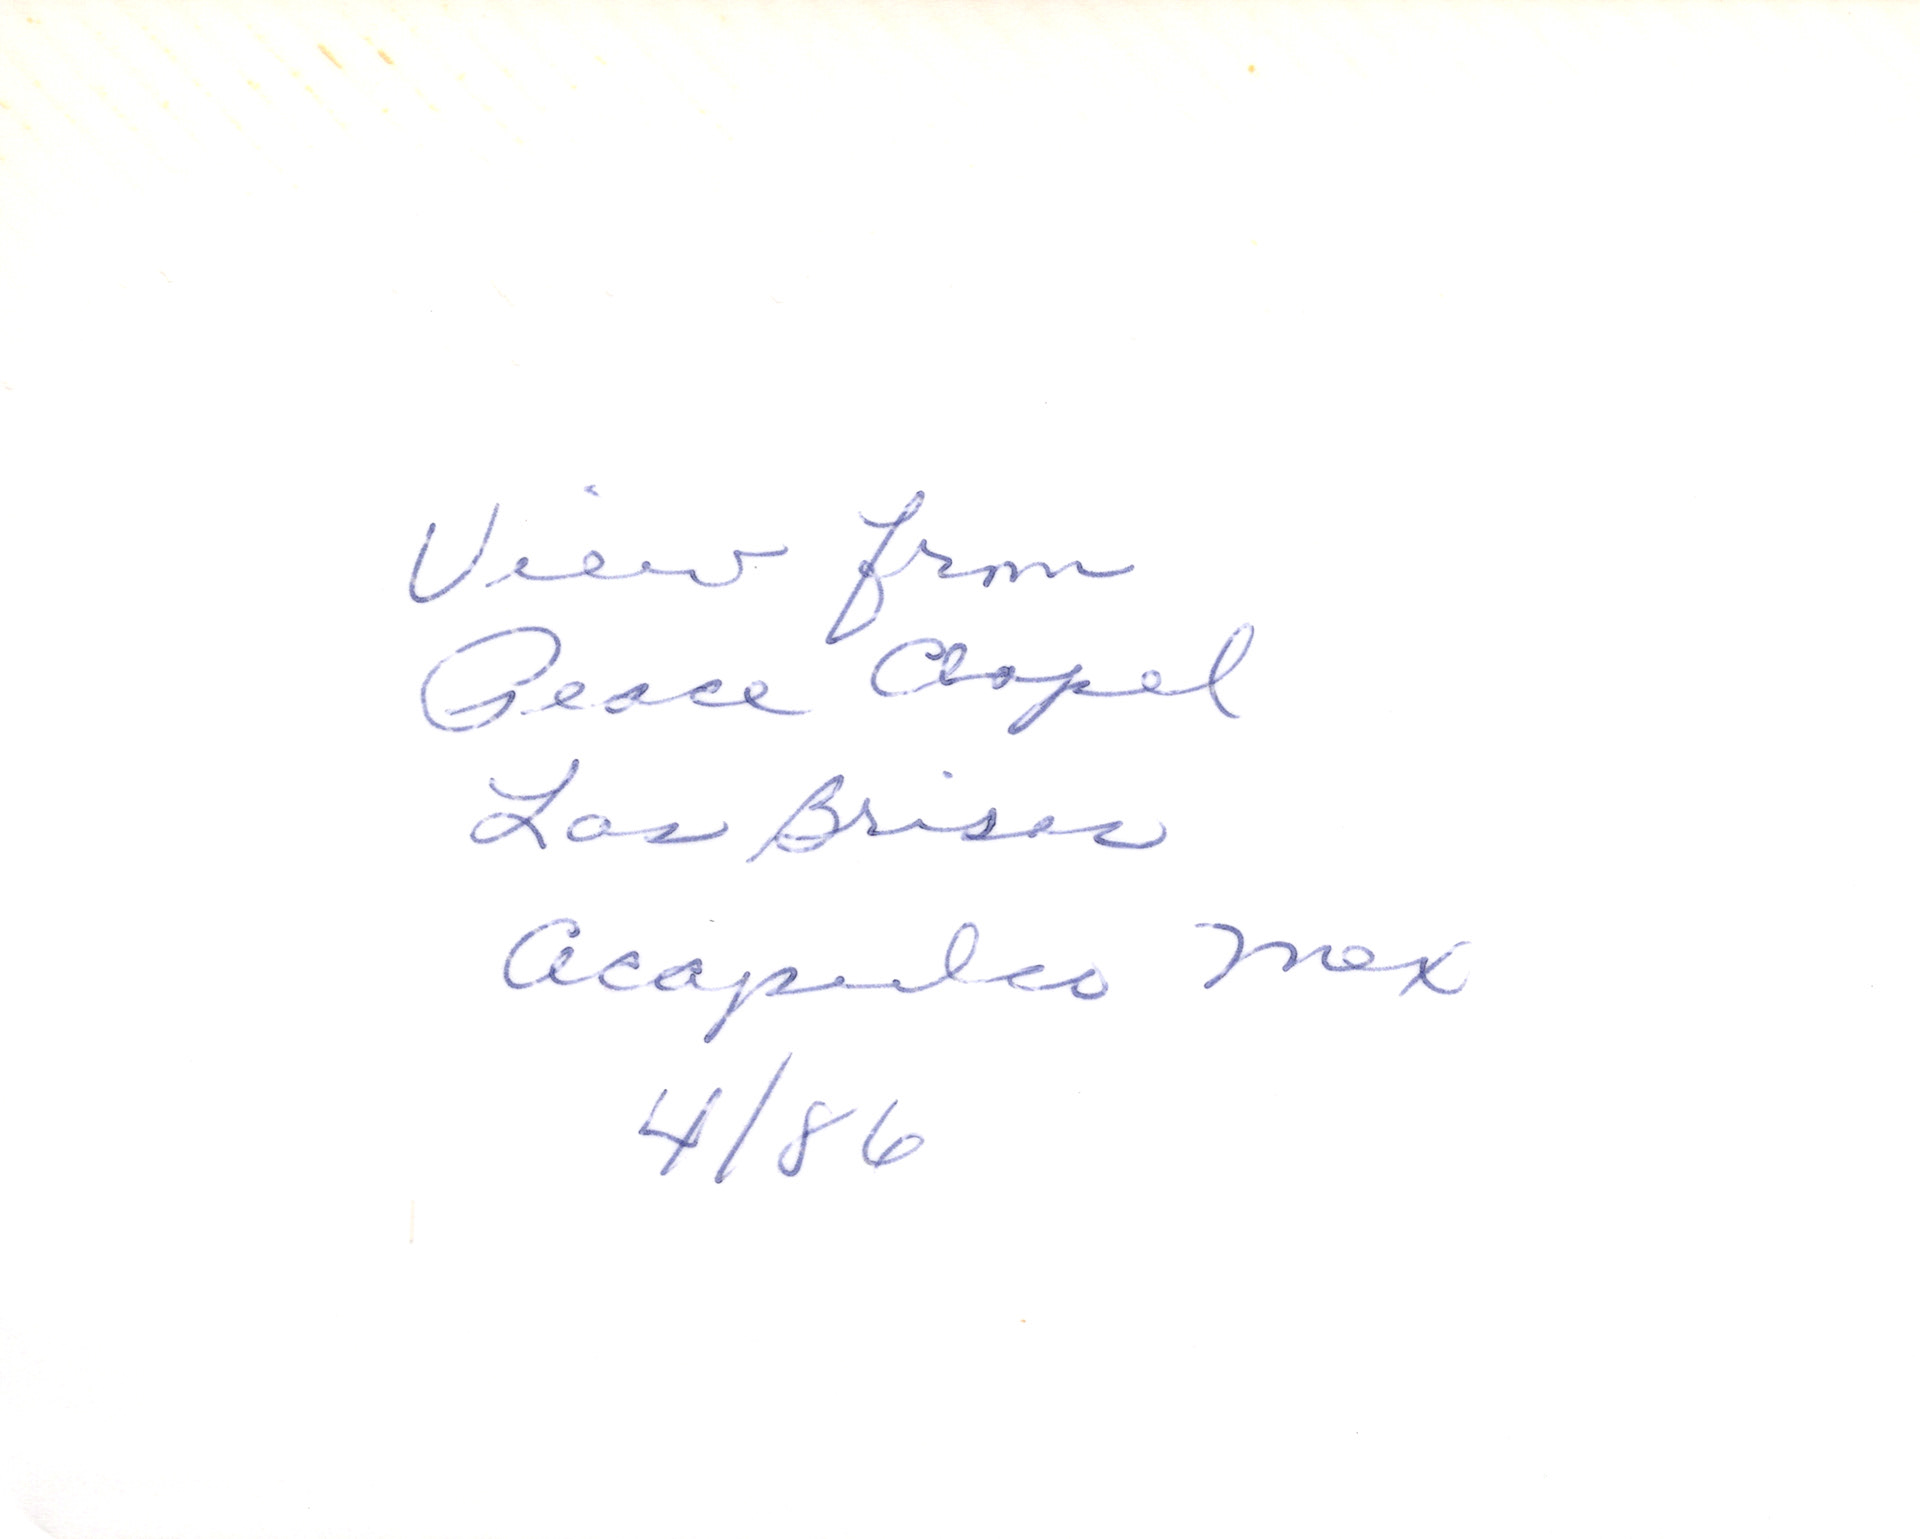 View from
Peace Chapel
Las Brisas
Acapulco Mex
4/86